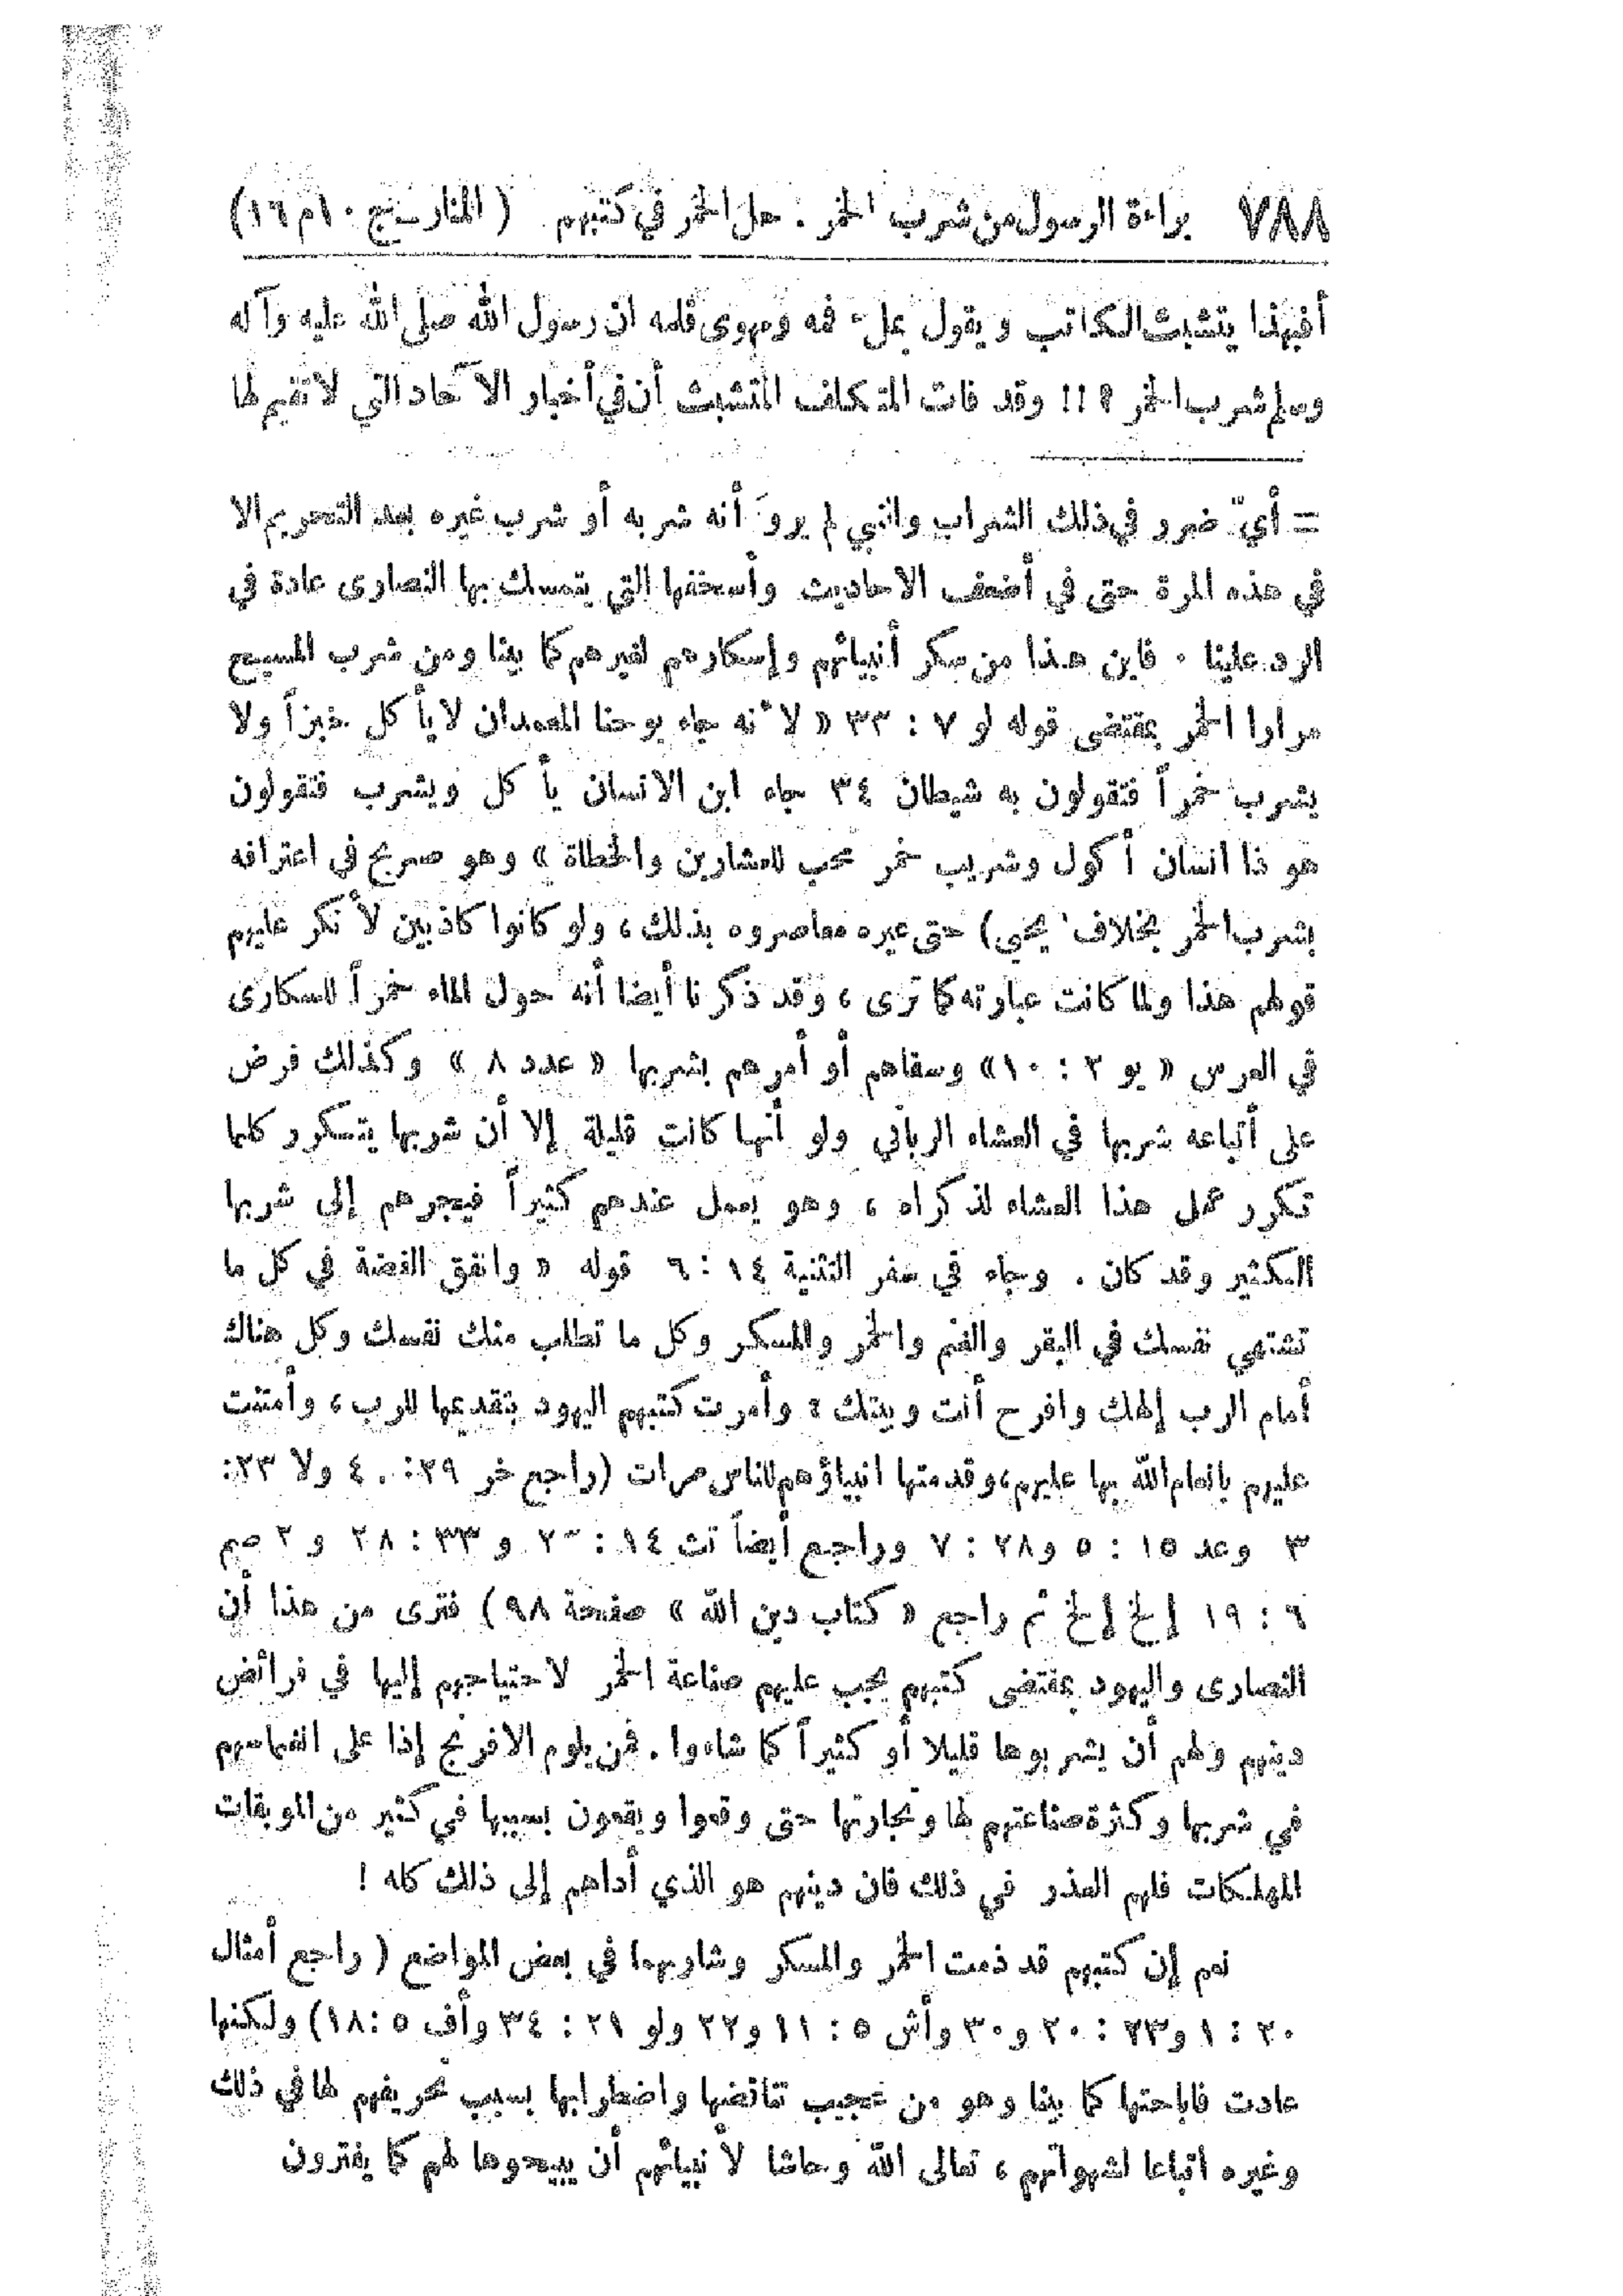 ٧٨٨ براءة الرسول من شرب الخمر . حل الخمر في كتبهم ( المنار ـ ج ١٠ م ١٦)
أفبهذا يتشبث الكاتب ويقول بملء فمه ومهوى قلمه ان رسول الله صلى الله عليه وآله
وسلم شرب الخمر ؟!! وقد فات المتكلف المتشبث أن في أخبار الآحاد التي لا تقيم لها
= أيّ ضرر في ذلك الشراب والنبي لم يروَ أنه شربه أو شرب غيره بعد التحريم الا
في هذه المرة حتى في أضعف الاحاديث وأسخفها التي يتمسك بها النصارى عادة في
الرد علينا . فاين هذا من سكر أنبيائهم وإسكارهم لغيرهم كما بينا ومن شرب المسيح
مرارا الخمر بمقتضى قوله لو ٧ : ٣٣ « لأنه جاء يوحنا المعمدان لا يأكل خبزاً ولا
يشرب خمراً فتقولون به شيطان ٣٤ جاء ابن الانسان يأكل ويشرب فتقولون
هو ذا انسان أكول وشريب خمر محب للعشارين والخطاة » وهو صريح في اعترافه
بشرب الخمر بخلاف يحيى) حتى عيره معاصروه بذلك ، ولو كانوا كاذبين لأنكر عليهم
قولهم هذا ولما كانت عبارته كما ترى ، وقد ذكرنا أيضا أنه حول الماء خمراً للسكارى
في العرس « يو ٢ : ١٠» وسقاهم أو أمرهم بشربها « عدد ٨ » وكذلك فرض
على أتباعه شربها في العشاء الرباني ولو أنها كانت قليلة إلا أن شربها يتكرر كلما
تكرر عمل هذا العشاء لذكراه ، وهو يعمل عندهم كثيراً فيجرهم إلى شربها
الكثير وقد كان . وجاء في سفر التثنية ١٤ : ٦ قوله « وانفق الفضة في كل ما
تشتهي نفسك في البقر والغنم والخمر والمسكر وكل ما تطلب منك نفسك وكل هناك
أمام الرب إلهك وافرح أنت وبيتك : وأمرت كتبهم اليهود بتقديمها للرب ، وأمتنت
عليهم بانعام الله بها عليهم، وقدمتها انبياؤهم للناس مرات (راجع خر ٢٩: ٤٠ ولا ٢٣:
٣ وعد ١٥ : ٥ و٢٨ : ٧ وراجع أيضاً تث ١٤ : و ٣٣ : ٢٨ و ٢ صم
٦ : ١٩ إلخ إلخ ثم راجع « كتاب دين الله » صفحة ٩٨) فترى من هذا أن
النصارى واليهود بمقتضى كتبهم يجب عليهم صناعة الخمر لاحتياجهم إليها في فرائض
دينهم ولهم أن يشربوها قليلا أو كثيراً كما شاءوا . فمن يلوم الافرنج إذا على انغماسهم
في شربها وكثرة صناعتهم لها وتجارتها حتى وقعوا ويقعون بسببها في كثير من الموبقات
المهلكات فلهم العذر في ذلك فان دينهم هو الذي أداهم إلى ذلك كله !
نعم إن كتبهم قد ذمت الخمر والمسكر وشاربهما في بعض المواضع ( راجع أمثال
٢٠ : ١ و٢٣ : ٢٠ و٣٠ وأش ٥ : ١١ و٢٢ ولو ٢١ : ٣٤ وأف ٥ :١٨) ولكنها
عادت فاباحتها كما بينا وهو من عجيب تناقضها واضطرابها بسبب تحريفهم لها في ذلك
وغيره اتباعا لشهواتهم ، تعالى الله وحاشا لأنبيائهم أن يبيحوها لهم كما يفترون